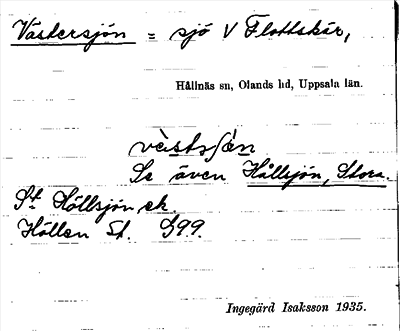 Västersjön = sjö V Flottskär,
Hållnäs sn, Olands hd, Uppsala län.
vèstsʃǿn
Se även Hållsjön, Stora.
St. Hållsjön, ek.
Hållen St. S99.
Ingegärd Isaksson 1935.